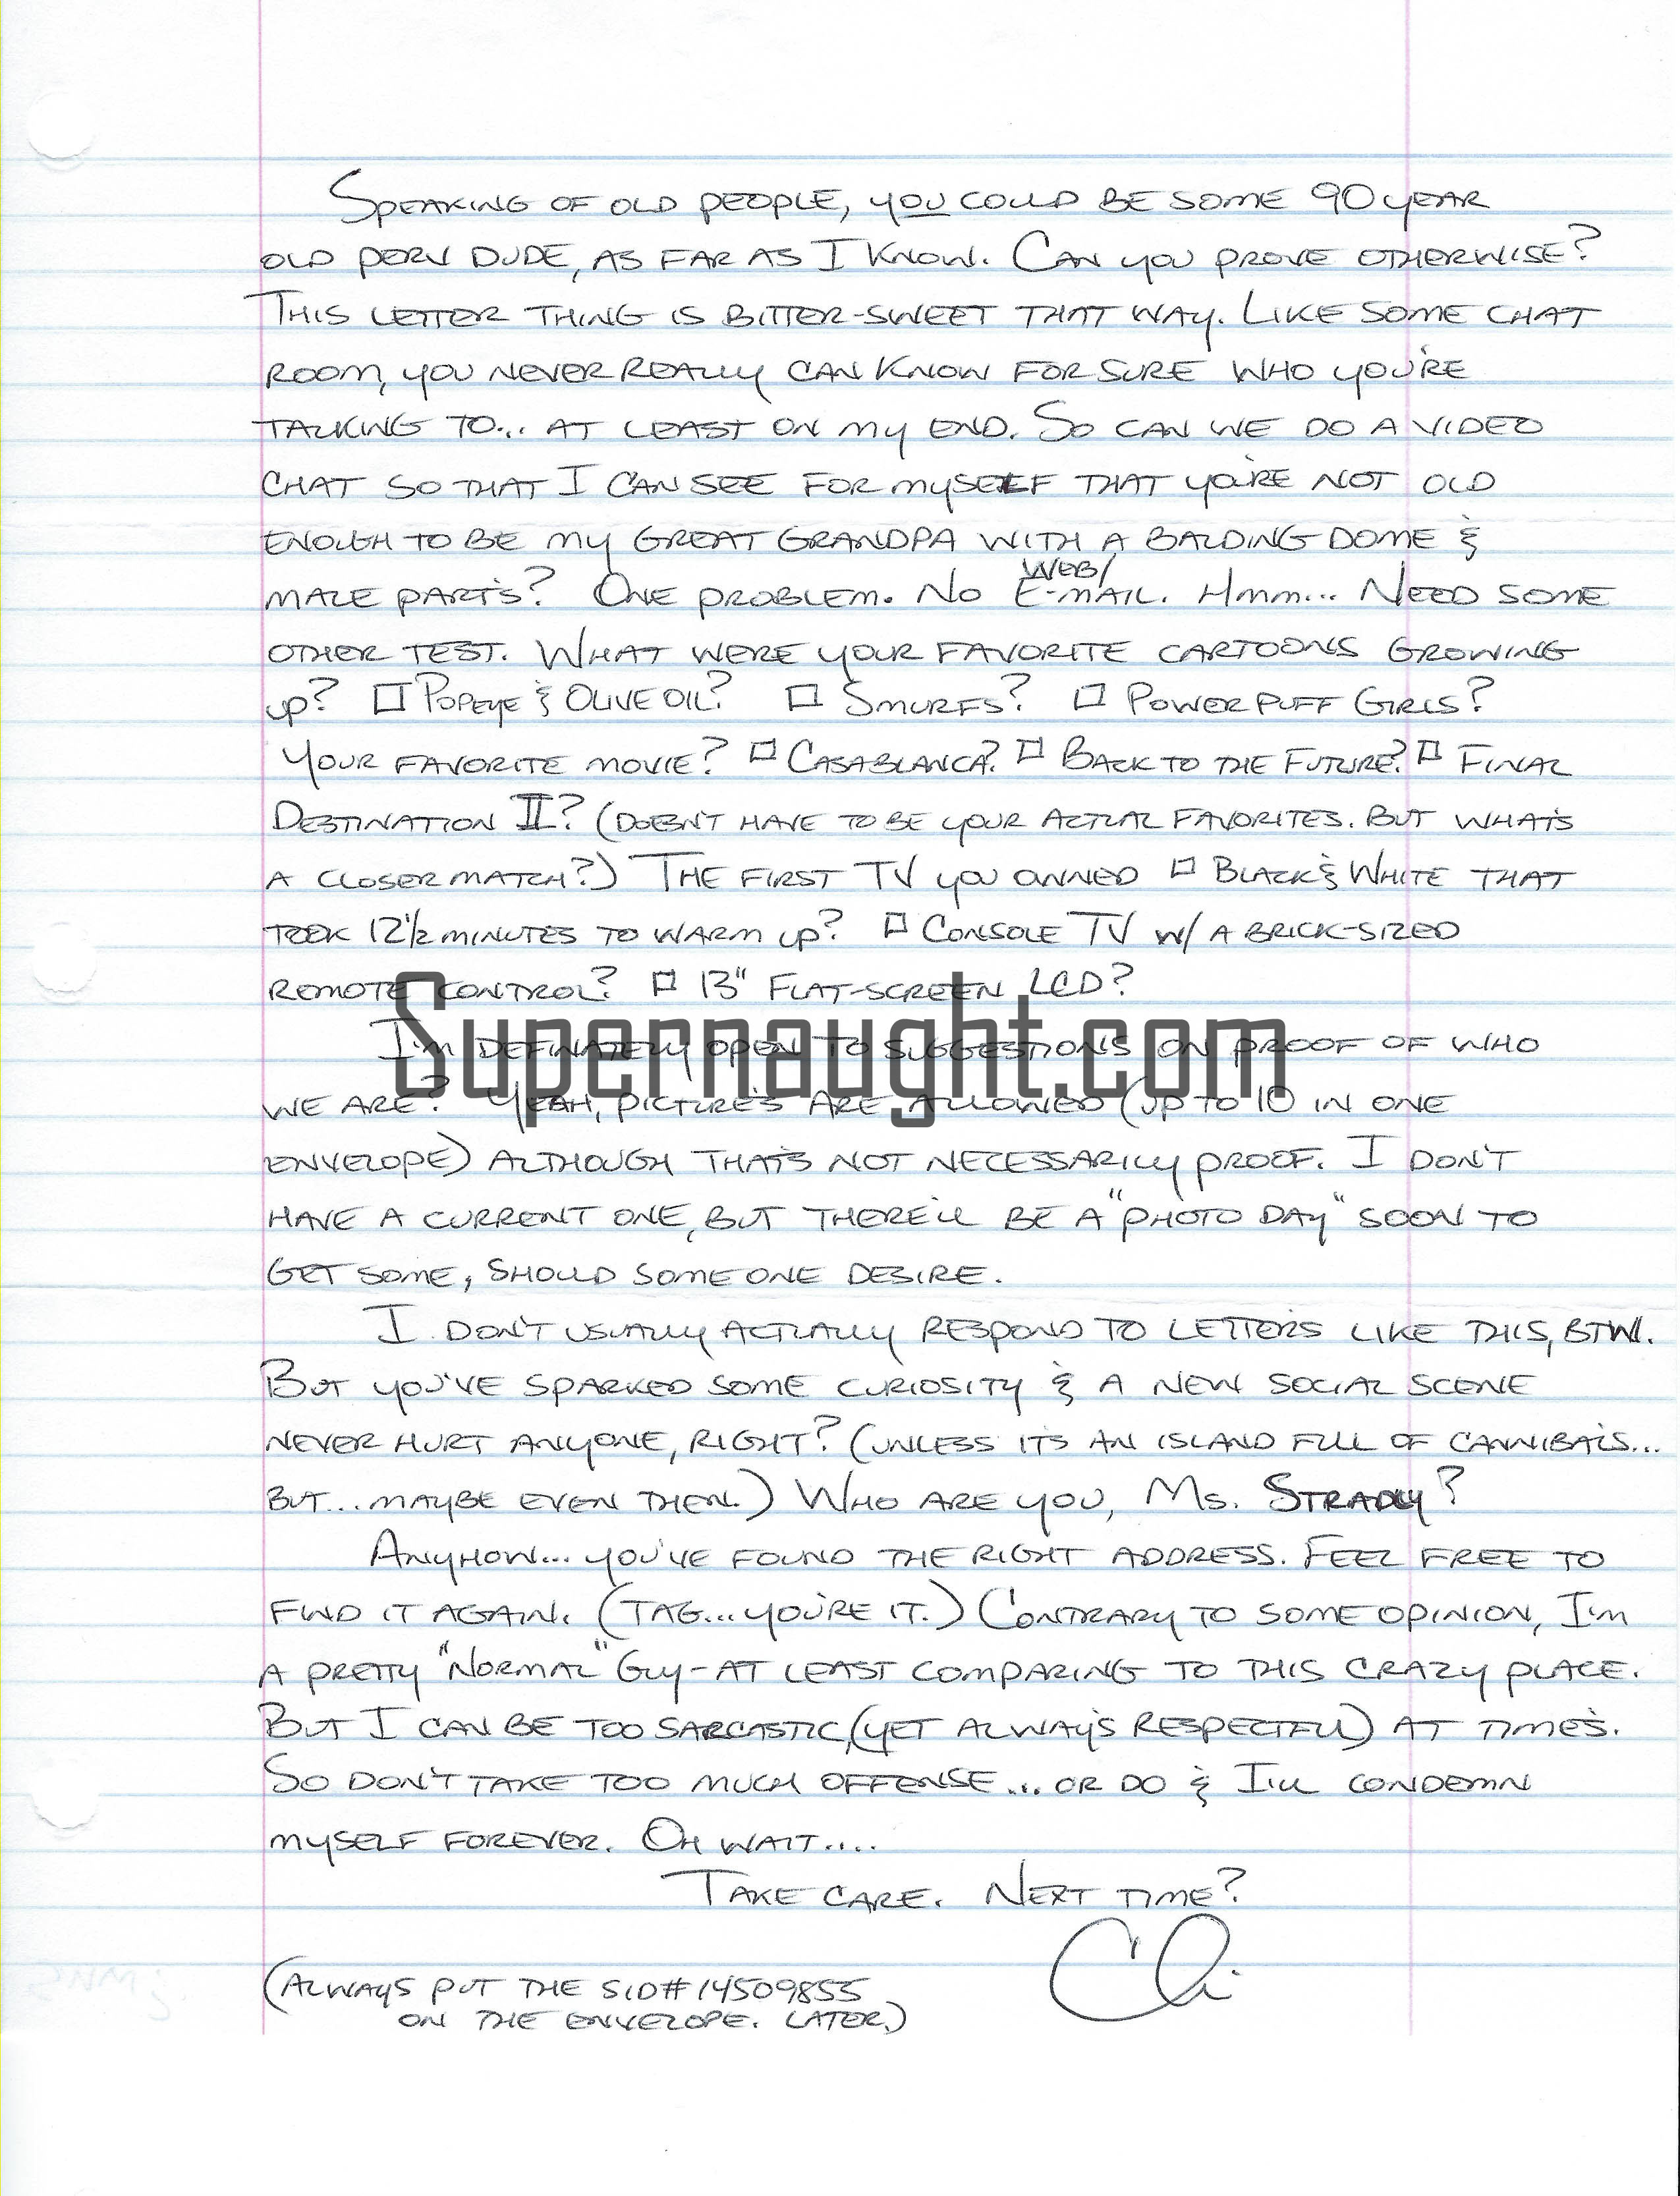 SPEAKING OF OLD PEOPLE, YOU COULD BE SOME 90 YEAR
OLD PERV DUDE, AS FAR AS I KNOW. CAN YOU PROVE OTHERWISE?
THIS LETTER THING IS BITTER-SWEET THAT WAY. LIKE SOME CHAT
ROOM, YOU NEVER REALLY CAN KNOW FOR SURE WHO YOU'RE
TALKING TO... AT LEAST ON MY END. SO CAN WE DO A VIDEO
CHAT SO THAT I CAN SEE FOR MYSELF THAT YOU'RE NOT OLD
ENOUGH TO BE MY GREAT GRANDPA WITH A BALDING DOME &
MALE PARTS? ONE PROBLEM. NO WEB/E-MAIL. HMM... NEED SOME
OTHER TEST. WHAT WERE YOUR FAVORITE CARTOONS GROWING
UP? □ POPEYE & OLIVE OIL? □ SMURFS? □ POWER PUFF GIRLS?
YOUR FAVORITE MOVIE? □ CASABLANCA? □ BACK TO THE FUTURE? □ FINAL
DESTINATION II? (DOESN'T HAVE TO BE YOUR ACTUAL FAVORITES. BUT WHAT'S
A CLOSER MATCH?) THE FIRST TV YOU OWNED □ BLACK & WHITE THAT
TOOK 12 1/2 MINUTES TO WARM UP? □ CONSOLE TV W/ A BRICK-SIZED
REMOTE CONTROL? □ 13" FLAT-SCREEN LCD?
Supernaught.com
I'M DEFINATELY OPEN TO SUGGESTIONS ON PROOF OF WHO
WE ARE? YEAH, PICTURES ARE ALLOWED (UP TO 10 IN ONE
ENVELOPE) ALTHOUGH THAT'S NOT NECESSARILY PROOF. I DON'T
HAVE A CURRENT ONE, BUT THERE'LL BE A "PHOTO DAY" SOON TO
GET SOME, SHOULD SOMEONE DESIRE.
I DON'T USUALLY ACTUALLY RESPOND TO LETTERS LIKE THIS, BTW.
BUT YOU'VE SPARKED SOME CURIOSITY & A NEW SOCIAL SCENE
NEVER HURT ANYONE, RIGHT? (UNLESS IT'S AN ISLAND FULL OF CANNIBALS...
BUT... MAYBE EVEN THEN.) WHO ARE YOU, MS. STRADLY?
ANYHOW... YOU'VE FOUND THE RIGHT ADDRESS. FEEL FREE TO
FIND IT AGAIN. (TAG... YOU'RE IT.) CONTRARY TO SOME OPINION, I'M
A PRETTY "NORMAL" GUY - AT LEAST COMPARING TO THIS CRAZY PLACE.
BUT I CAN BE TOO SARCASTIC, (YET ALWAYS RESPECTFUL) AT TIMES.
SO DON'T TAKE TOO MUCH OFFENSE... OR DO & I'LL CONDEMN
MYSELF FOREVER. OH WAIT....
TAKE CARE. NEXT TIME?
(ALWAYS PUT THE SID# 14509855
ON THE ENVELOPE. LATER.)